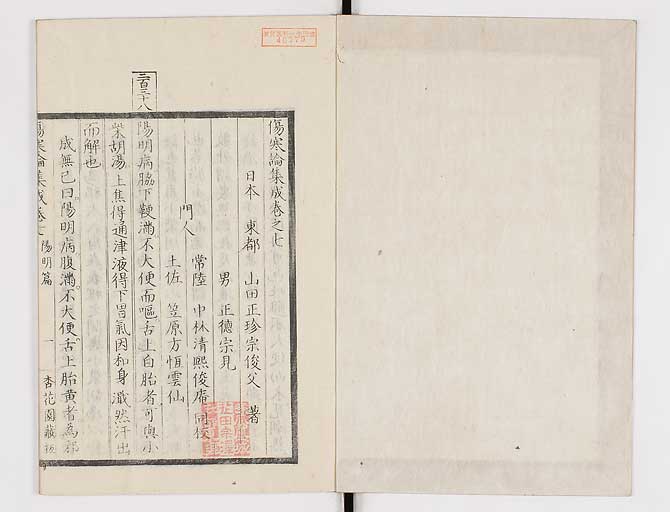 傷寒論集成卷之七
日本 東都 山田正珍宗俊父 著
男 正德宗見
門人
常陸 中林清熙俊庵 同校
土佐 笠原方恒雲仙
二百三十八
陽明病脇下鞕滿不大便而嘔舌上白胎者可與小
柴胡湯上焦得通津液得下胃氣因和身濈然汗出
而解也
成無己曰陽明病腹滿不大便舌上胎黃者為邪
傷寒論集成卷七 陽明篇 一 杏花園藏板
46379